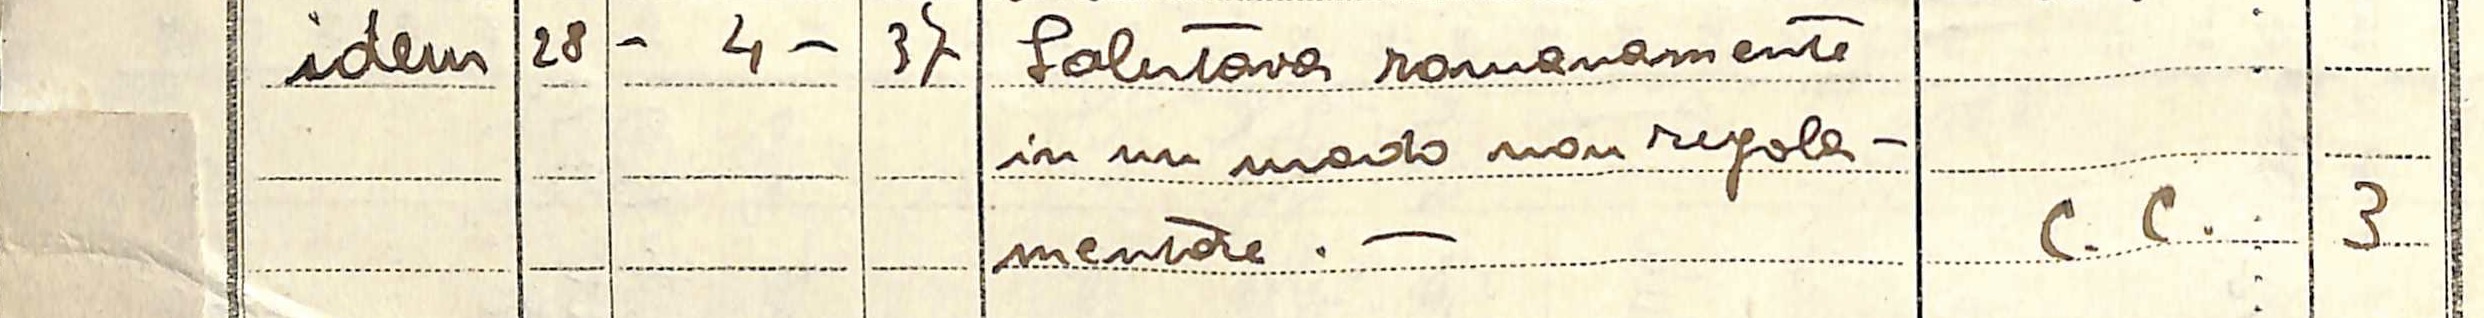 idem 28 - 4 - 37 Salutava romanamente
in un modo non regola-
mentare. — C. C. 3